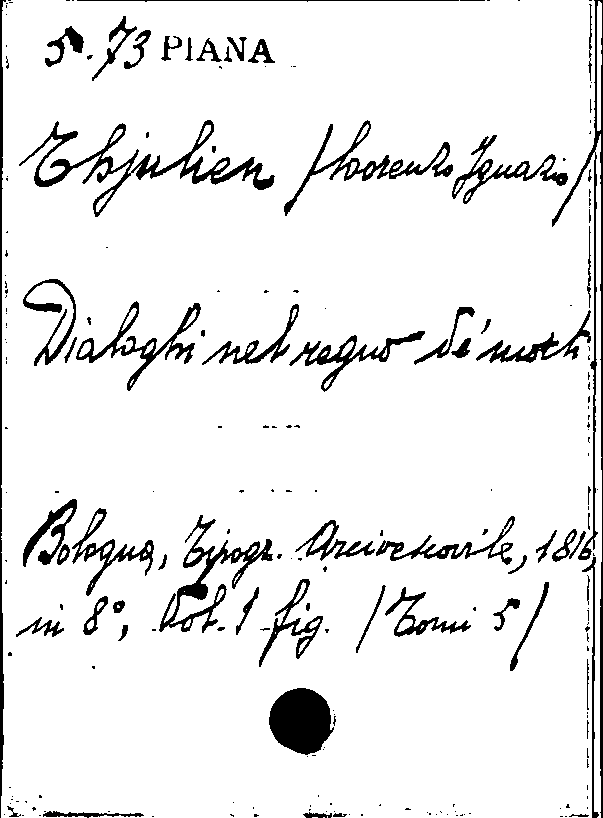 5. 73 PIANA
Thjulien /Lorenzo Ignazio/
Dialoghi nel regno de' morti.
Bologna, Tipogr. Arcivescovile, 1816,
in 8°, Vol. 1 fig. /Tomi 5/